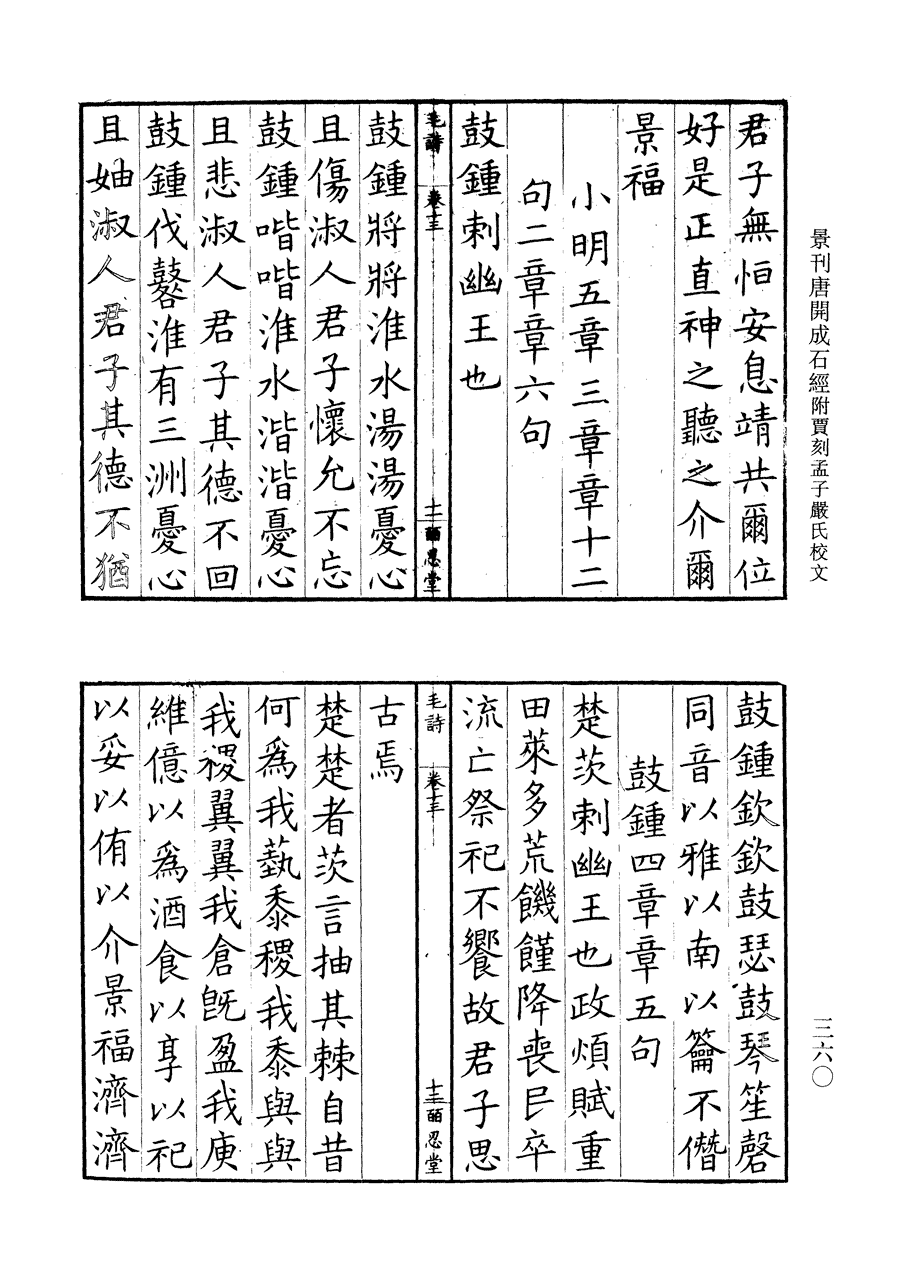 景刊唐開成石經附賈刻孟子嚴氏校文
君子無恒安息靖共爾位
好是正直神之聽之介爾
景福
小明五章三章章十二
句二章章六句
鼓鍾刺幽王也
毛詩 卷十三 十二 皕忍堂
鼓鍾將將淮水湯湯憂心
且傷淑人君子懷允不忘
鼓鍾喈喈淮水湝湝憂心
且悲淑人君子其德不回
鼓鍾伐鼛淮有三洲憂心
且妯淑人君子其德不猶
三六〇
鼓鍾欽欽鼓瑟鼓琴笙磬
同音以雅以南以籥不僭
鼓鍾四章章五句
楚茨刺幽王也政煩賦重
田萊多荒饑饉降喪民卒
流亡祭祀不饗故君子思
毛詩 卷十三 十三 皕忍堂
古焉
楚楚者茨言抽其棘自昔
何為我蓺黍稷我黍與與
我稷翼翼我倉旣盈我庾
維億以為酒食以享以祀
以妥以侑以介景福濟濟